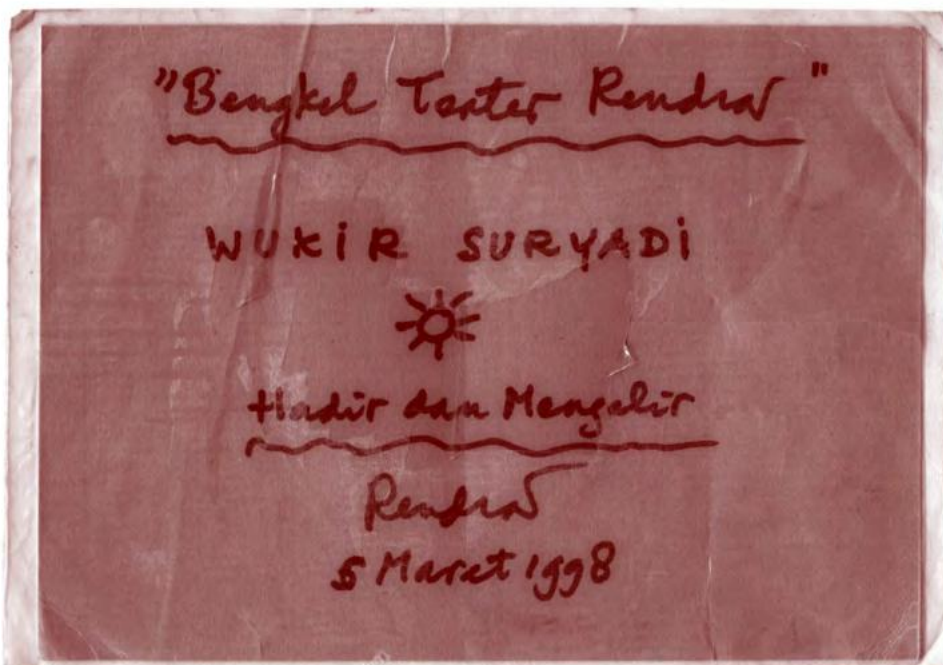 "Bengkel Teater Rendra"
WUKiR SURYADi
Hadir dan Mengalir
Rendra
5 Maret 1998